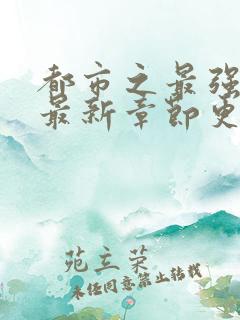 都市之最强
最新章节更
苑立荣
未经同意禁止转载